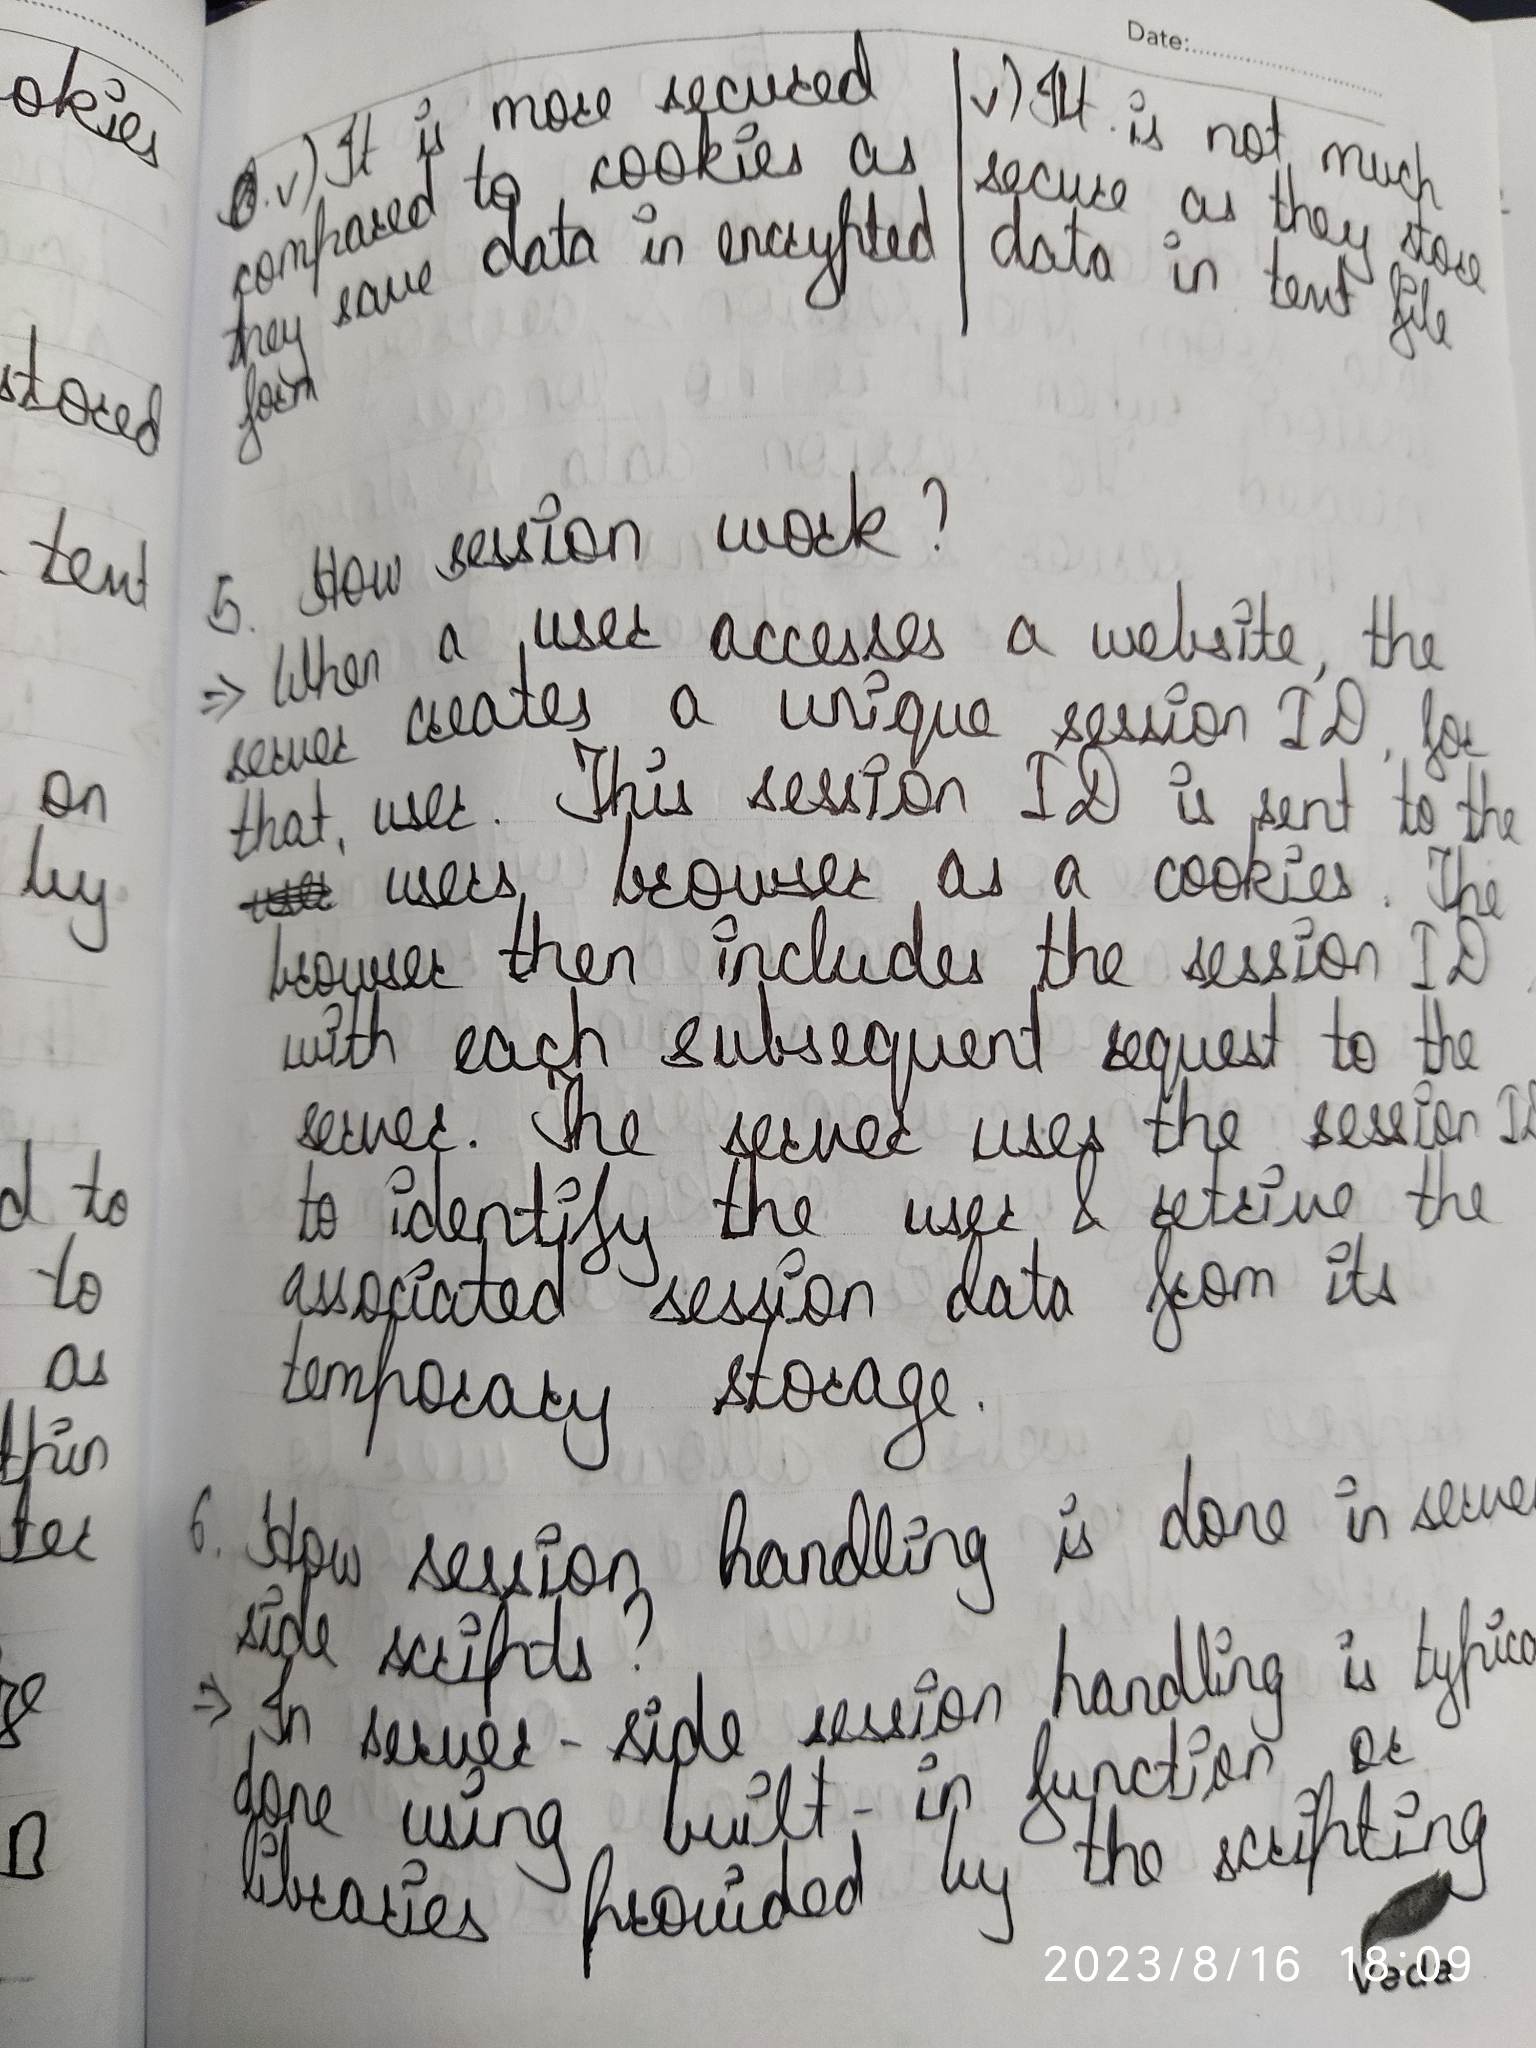 Date:
okies
stored
tent
on
by
d to
to
as
n
v) It is more secured
compared to cookies as
they save data in encrypted
form
v) It is not much
secure as they store
data in tent file
5. How session work?
=> When a user accesses a website, the
server creates a unique session ID, for
that, user. This session ID is sent to the
users, browser as a cookies. The
browser then includes the session ID
with each subsequent request to the
server. The server uses the session ID
to identify the user & retrive the
associated session data from its
temporary storage.
6. How session handling is done in serve
side scripts?
=> In server-side session handling is typica
done using built-in function or
libraries provided by the scripting
2023/8/16 18:09
Veda